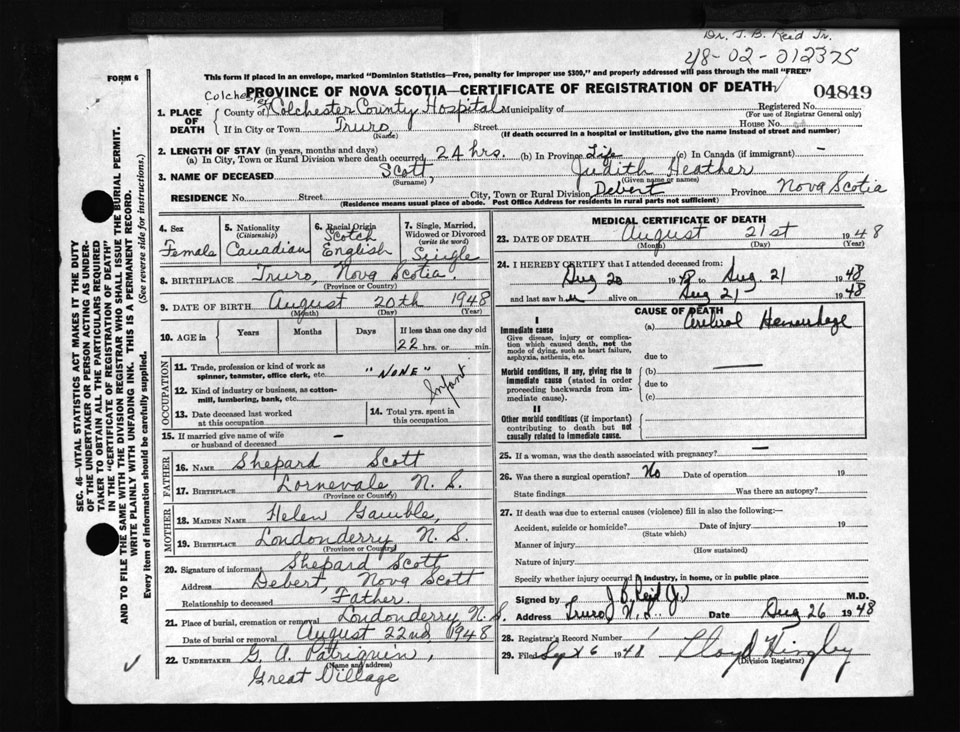 Dr. J. B. Reid Jr.
48-02-012375
FORM 6
This form if placed in an envelope, marked "Dominion Statistics—Free, penalty for improper use $300," and properly addressed will pass through the mail "FREE"
PROVINCE OF NOVA SCOTIA—CERTIFICATE OF REGISTRATION OF DEATH
04849
1. PLACE OF DEATH
Colchester
County of Colchester County Hospital Municipality of
Registered No.
(For use of Registrar General only)
If in City or Town Truro Street House No.
(Name) (If death occurred in a hospital or institution, give the name instead of street and number)
2. LENGTH OF STAY (in years, months and days)
(a) In City, Town or Rural Division where death occurred 24 hrs. (b) In Province Life (c) In Canada (if immigrant) —
3. NAME OF DECEASED Scott, Judith Heather
(Surname) (Given name or names)
RESIDENCE No. Street City, Town or Rural Division Debert Province Nova Scotia
(Residence means usual place of abode. Post Office Address for residents in rural parts not sufficient)
4. Sex
Female
5. Nationality
(Citizenship)
Canadian
6. Racial Origin
Scotch
English
7. Single, Married, Widowed or Divorced
(write the word)
Single
8. BIRTHPLACE Truro, Nova Scotia.
(Province or Country)
9. DATE OF BIRTH August 20th 1948
(Month) (Day) (Year)
10. AGE in
Years Months Days If less than one day old
22 hrs. or min.
OCCUPATION
11. Trade, profession or kind of work as spinner, teamster, office clerk, etc. "NONE"
Infant
12. Kind of industry or business, as cotton-mill, lumbering, bank, etc.
13. Date deceased last worked at this occupation
14. Total yrs. spent in this occupation
15. If married give name of wife or husband of deceased —
FATHER
16. NAME Shepard Scott
17. BIRTHPLACE Lornevale N. S.
(Province or Country)
MOTHER
18. MAIDEN NAME Helen Gamble,
19. BIRTHPLACE Londonderry, N. S.
(Province or Country)
20. Signature of informant Shepard Scott
Address Debert, Nova Scott
Relationship to deceased Father.
21. Place of burial, cremation or removal Londonderry N. S.
Date of burial or removal August 22nd, 1948
22. UNDERTAKER G. A. Patriquin,
(Name and address)
Great Village
MEDICAL CERTIFICATE OF DEATH
23. DATE OF DEATH August 21st 1948
(Month) (Day) (Year)
24. I HEREBY CERTIFY that I attended deceased from:
Aug 20 1948 to Aug. 21 1948
and last saw her alive on Aug 21 1948
CAUSE OF DEATH
I
Immediate cause
Give disease, injury or complication which caused death, not the mode of dying, such as heart failure, asphyxia, asthenia, etc.
(a) Cerebral Hemorrhage
due to
Morbid conditions, if any, giving rise to immediate cause (stated in order proceeding backwards from immediate cause).
(b)
due to
(c)
II
Other morbid conditions (if important) contributing to death but not causally related to immediate cause.
25. If a woman, was the death associated with pregnancy? —
26. Was there a surgical operation? No Date of operation 19
State findings Was there an autopsy?
27. If death was due to external causes (violence) fill in also the following:—
Accident, suicide or homicide? Date of injury 19
(State which)
Manner of injury
(How sustained)
Nature of injury
Specify whether injury occurred in industry, in home, or in public place
Signed by J B Reid Jr M.D.
Address Truro N. S. Date Aug 26 1948
28. Registrar's Record Number 1
29. Filed Sept 6 1948 Lloyd
(Division Registrar)
SEC. 46—VITAL STATISTICS ACT MAKES IT THE DUTY
OF THE UNDERTAKER OR PERSON ACTING AS UNDER-
TAKER TO OBTAIN ALL THE PARTICULARS REQUIRED
IN THE "CERTIFICATE OF REGISTRATION OF DEATH"
AND TO FILE THE SAME WITH THE DIVISION REGISTRAR WHO SHALL ISSUE THE BURIAL PERMIT.
WRITE PLAINLY WITH UNFADING INK. THIS IS A PERMANENT RECORD.
Every item of information should be carefully supplied. (See reverse side for instructions.)